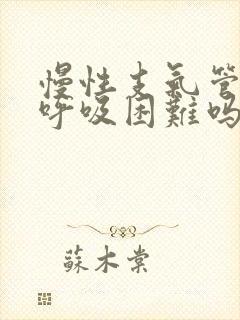 慢性支氣管
呼吸困難嗎
蘇木棠